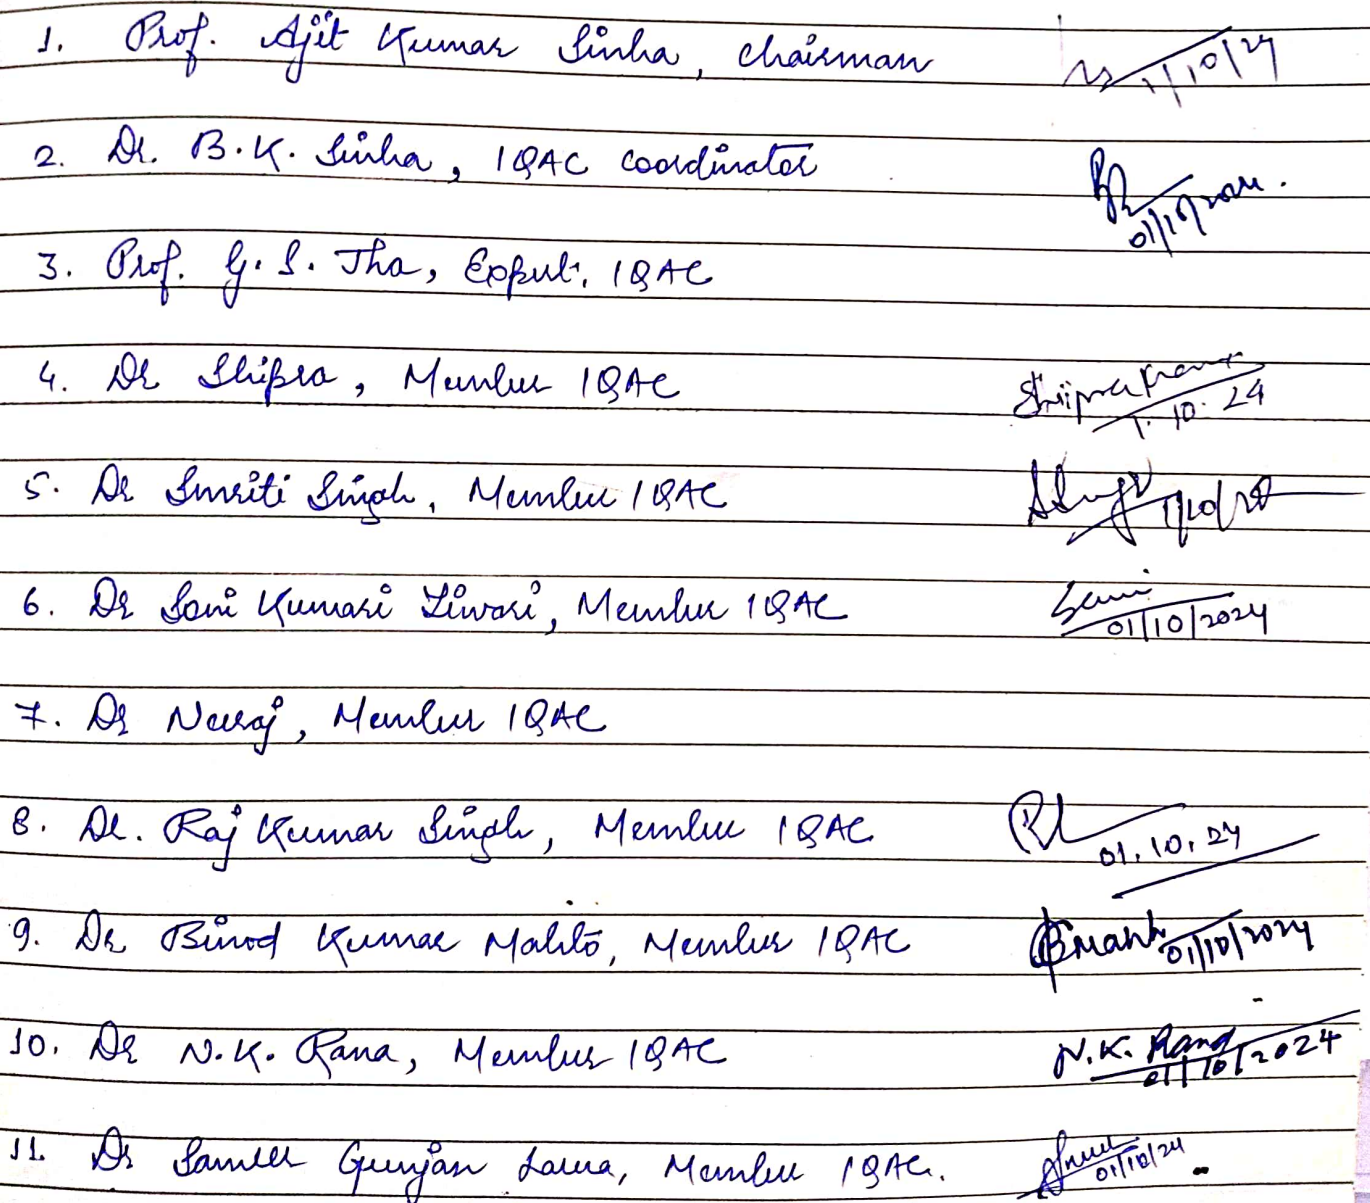 1. Prof. Ajit Kumar Sinha, Chairman 1/10/24
2. Dr. B.K. Sinha, IQAC coordinator 01/10/2024.
3. Prof. G.S. Jha, Expert, IQAC
4. Dr Shipra, Member IQAC Shipra 1.10.24
5. Dr Smriti Singh, Member IQAC 1/10/24
6. Dr Soni Kumari Tiwari, Member IQAC Soni 01/10/2024
7. Dr Neeraj, Member IQAC
8. Dr. Raj Kumar Singh, Member IQAC 01.10.24
9. Dr Binod Kumar Mahto, Member IQAC 01/10/2024
10. Dr N.K. Rana, Member IQAC N.K. Rana 01/10/2024
11. Dr Sameer Gunjan Lakra, Member IQAC. 01/10/24